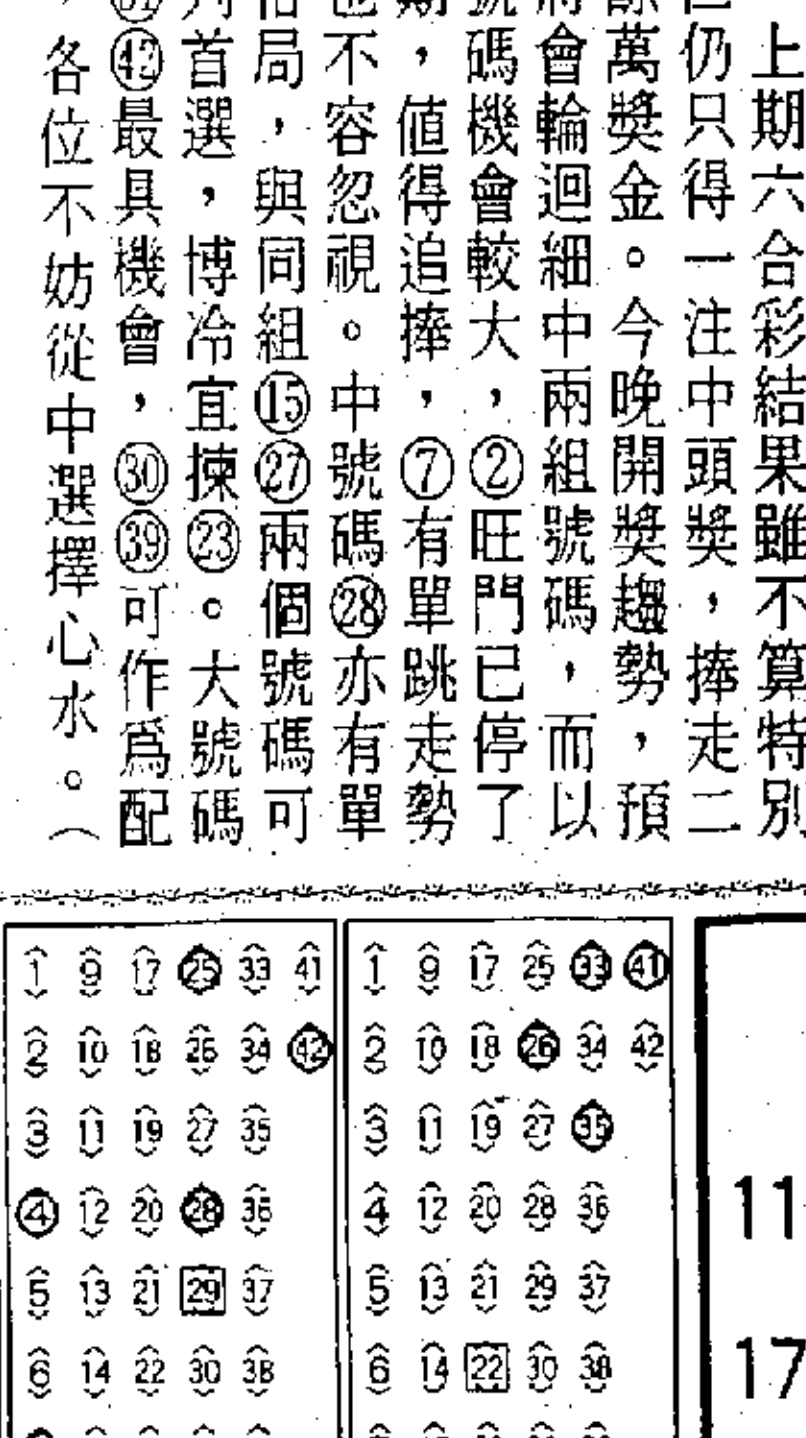 上期六合彩結果雖不算特別
仍只得一注中頭奬，捧走二
萬奬金。今晚開奬趨勢，預
會輪迴細中兩組號碼，而以
碼機會較大，②旺門已停了
，值得追捧，⑦有單跳走勢
不容忽視。中號碼㉘亦有單
局，與同組⑮㉗兩個號碼可
首選，博冷宜揀㉓。大號碼
㊷最具機會，㉚㊴可作爲配
，各位不妨從中選擇心水。（
1 9 17 25 33 41
2 10 18 26 34 42
3 11 19 27 35
4 12 20 28 36
5 13 21 29 37
6 14 22 30 38
1 9 17 25 33 41
2 10 18 26 34 42
3 11 19 27 35
4 12 20 28 36
5 13 21 29 37
6 14 22 30 38
11
17